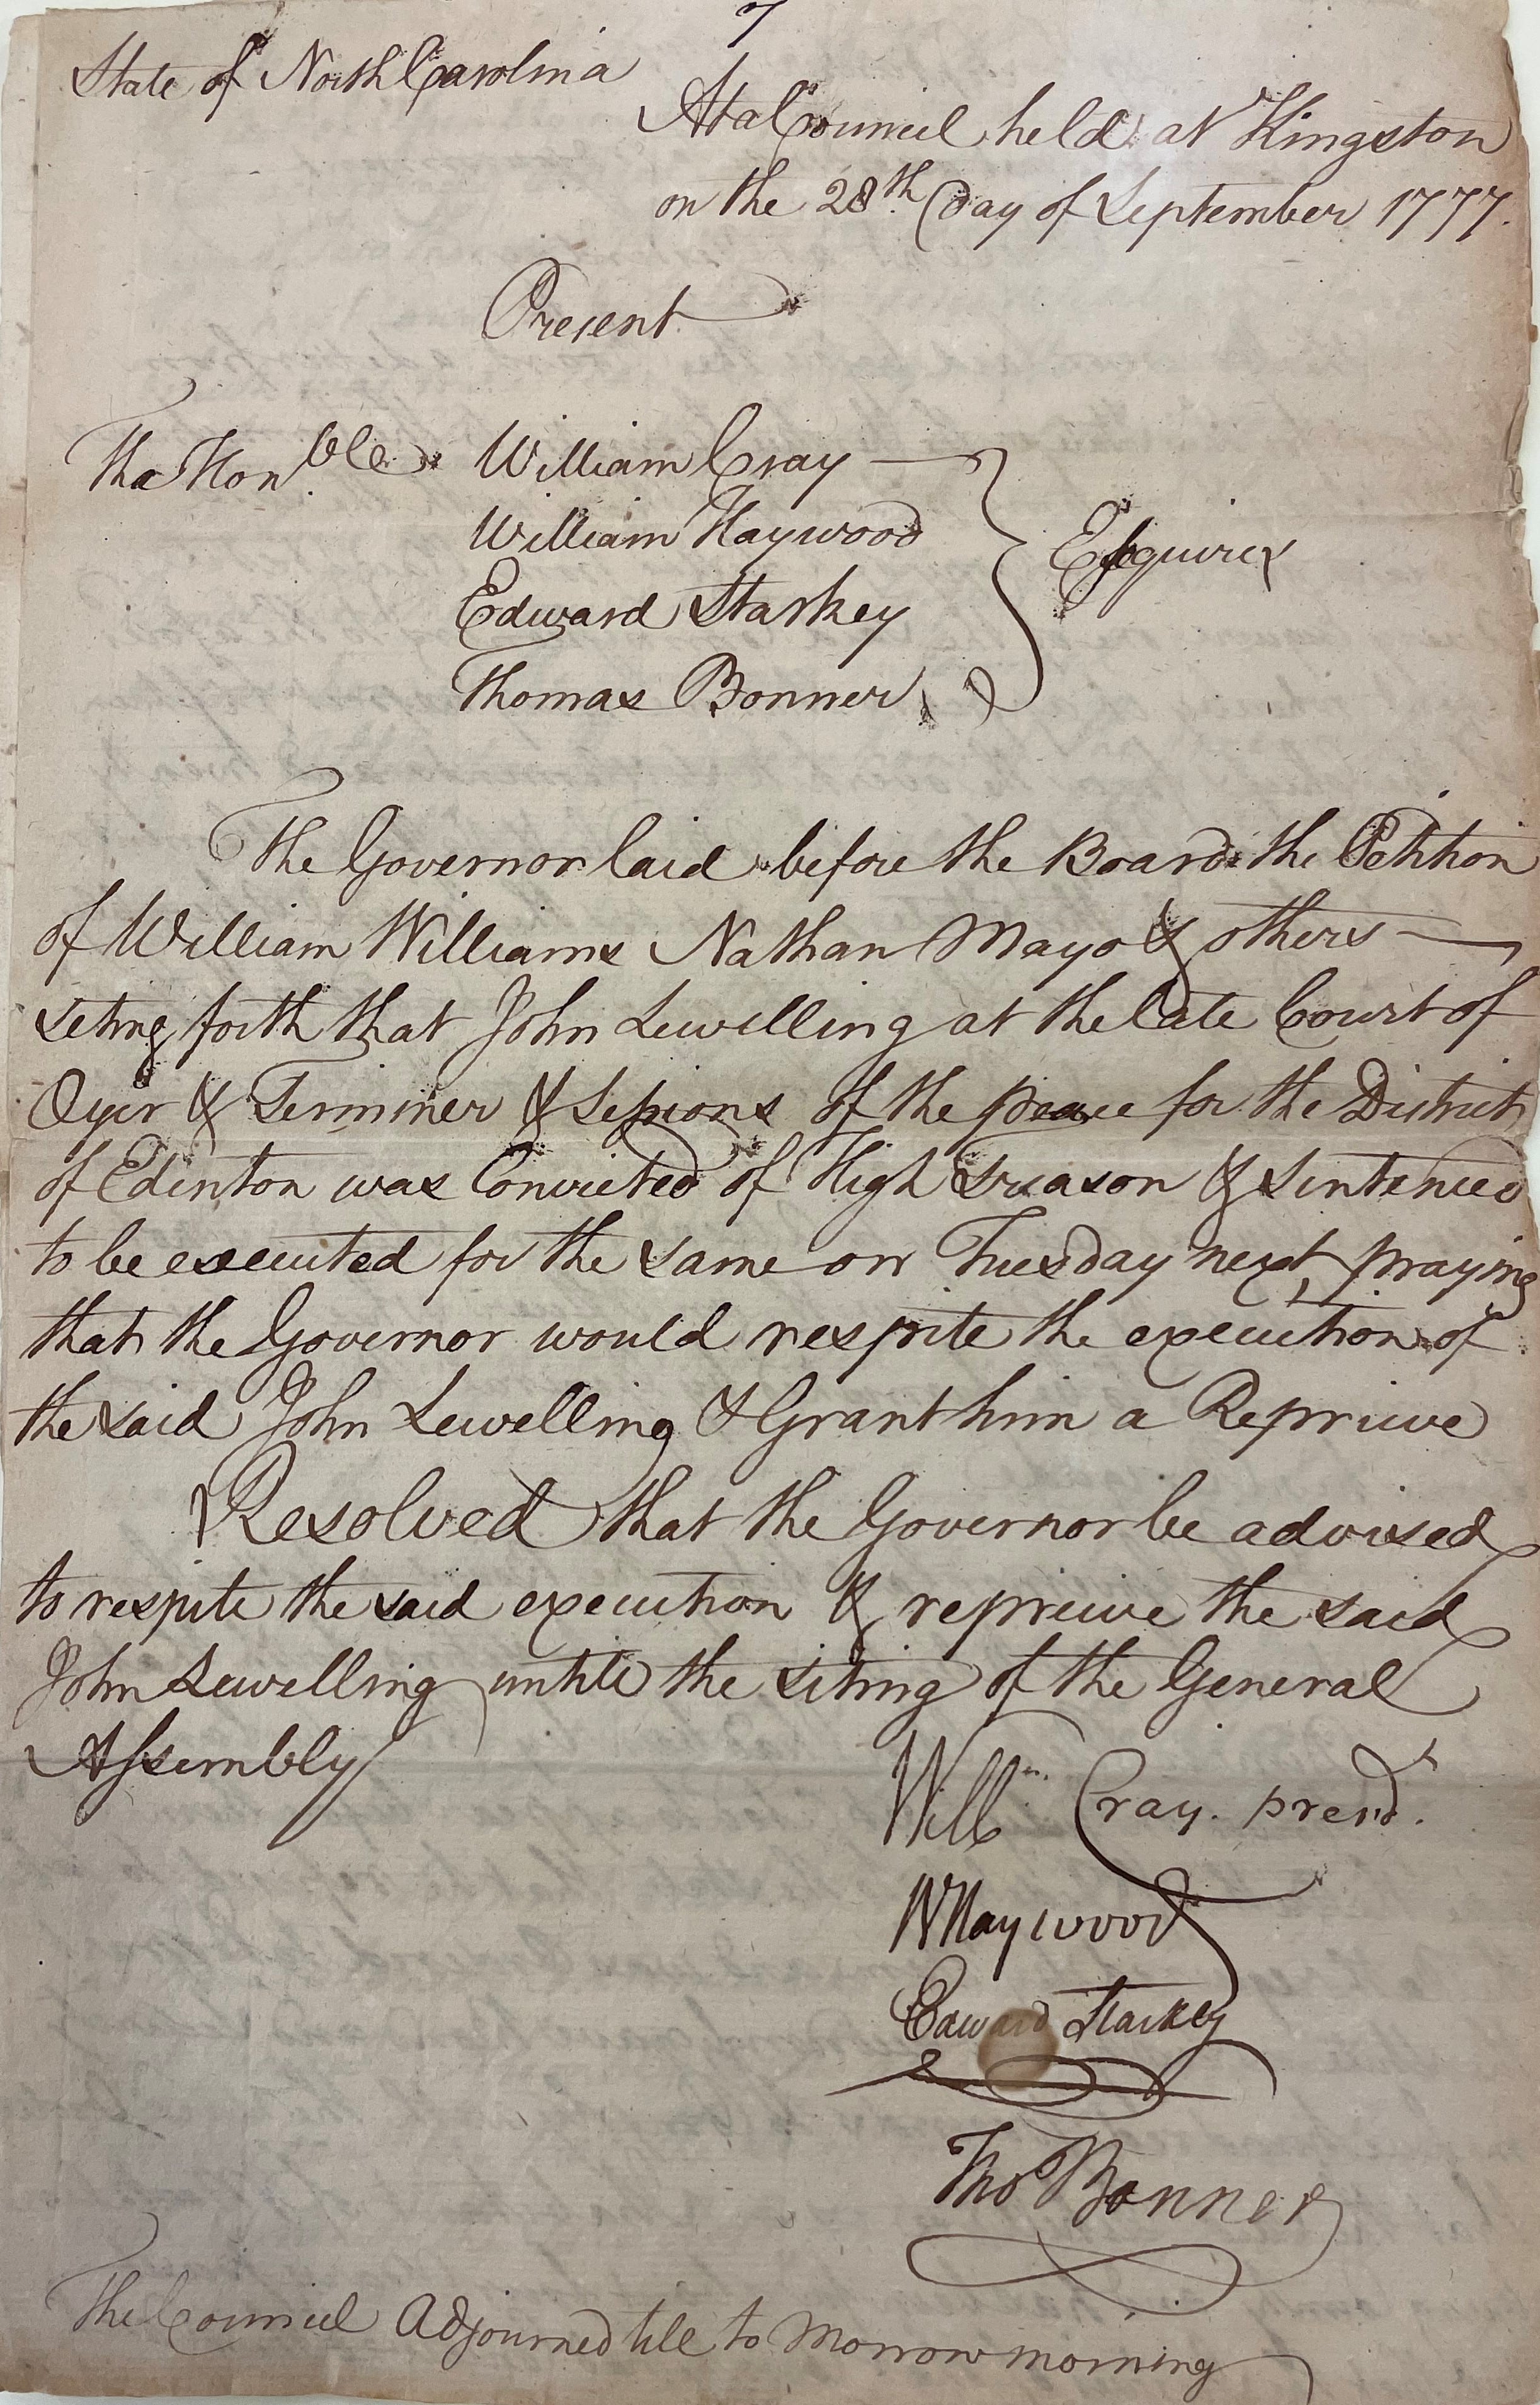 7
State of North Carolina
At a Council held at Kingston
on the 28th Day of September 1777.
Present
The Honble William Cray
William Haywood
Edward Starkey
Esquires
Thomas Bonner
The Governor laid before the Board the Petition
of William Williams Nathan Mayo & others
seting forth that John Lewelling at the late Court of
Oyer & Terminer & Sessions of the peace for the District
of Edenton was Convicted of High Treason & Sentenced
to be executed for the same on Tuesday next, praying
that the Governor would respite the execution of
the said John Lewelling & Grant him a Reprieve
Resolved that the Governor be advised
to respite the said execution & reprieve the said
John Lewelling untill the siting of the General
Assembly
Willm Cray. presd.
WHaywood
Edward Starkey
Thos Bonner
The Council Adjourned till to Morrow morning